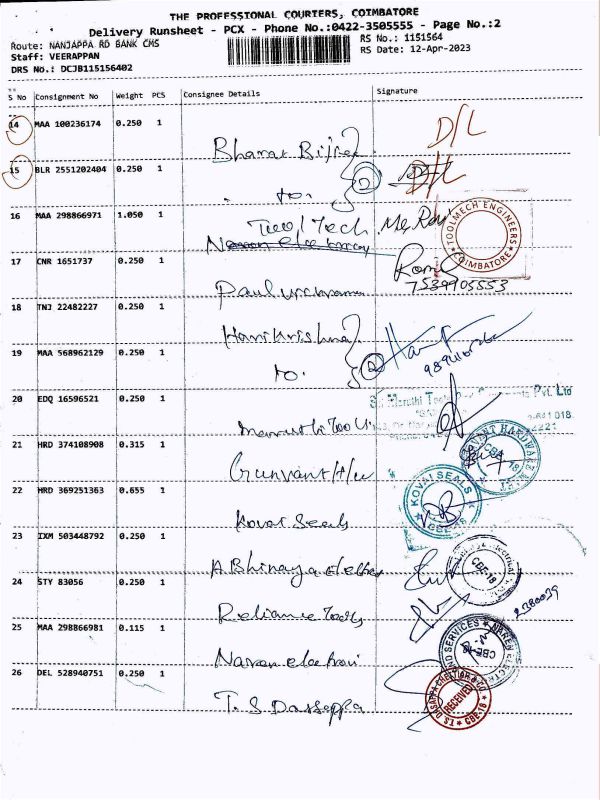 THE PROFESSIONAL COURIERS, COIMBATORE
Delivery Runsheet - PCX - Phone No.:0422-3505555 - Page No.:2
Route: NANJAPPA RD BANK CMS
RS No.: 1151564
Staff: VEERAPPAN
RS Date: 12-Apr-2023
DRS No.: DCJB115156402
S No Consignment No Weight PCS Consignee Details Signature
14 MAA 100236174 0.250 1 D/L
Bharat
15 BLR 2551202404 0.250 1 D/L
to. 2
16 MAA 298866971 1.050 1
Tool Tech
TOOLMECH ENGINEERS COIMBATORE
17 CNR 1651737 0.250 1
Paul
7539905553
18 TNJ 22482227 0.250 1
Harikrishna
19 MAA 568962129 0.250 1
to. 2
20 EDQ 16596521 0.250 1
Pvt. Ltd
641 018
Maruthi Tools
21 HRD 374108908 0.315 1
Gunvant H/w
HARDWARE MART CBE-18
22 HRD 369251363 0.655 1
Kovai Seals
KOVAI SEALS CBE-18
23 IXM 503448792 0.250 1
Abhinaya
CBE-18
24 STY 83056 0.250 1
Reliance Tools
2380039
25 MAA 298866981 0.115 1
Naren
AND SERVICES NAREN ELECTR CBE-18
26 DEL 528940751 0.250 1
T. S Dasappa
RECEIVED CBE-18